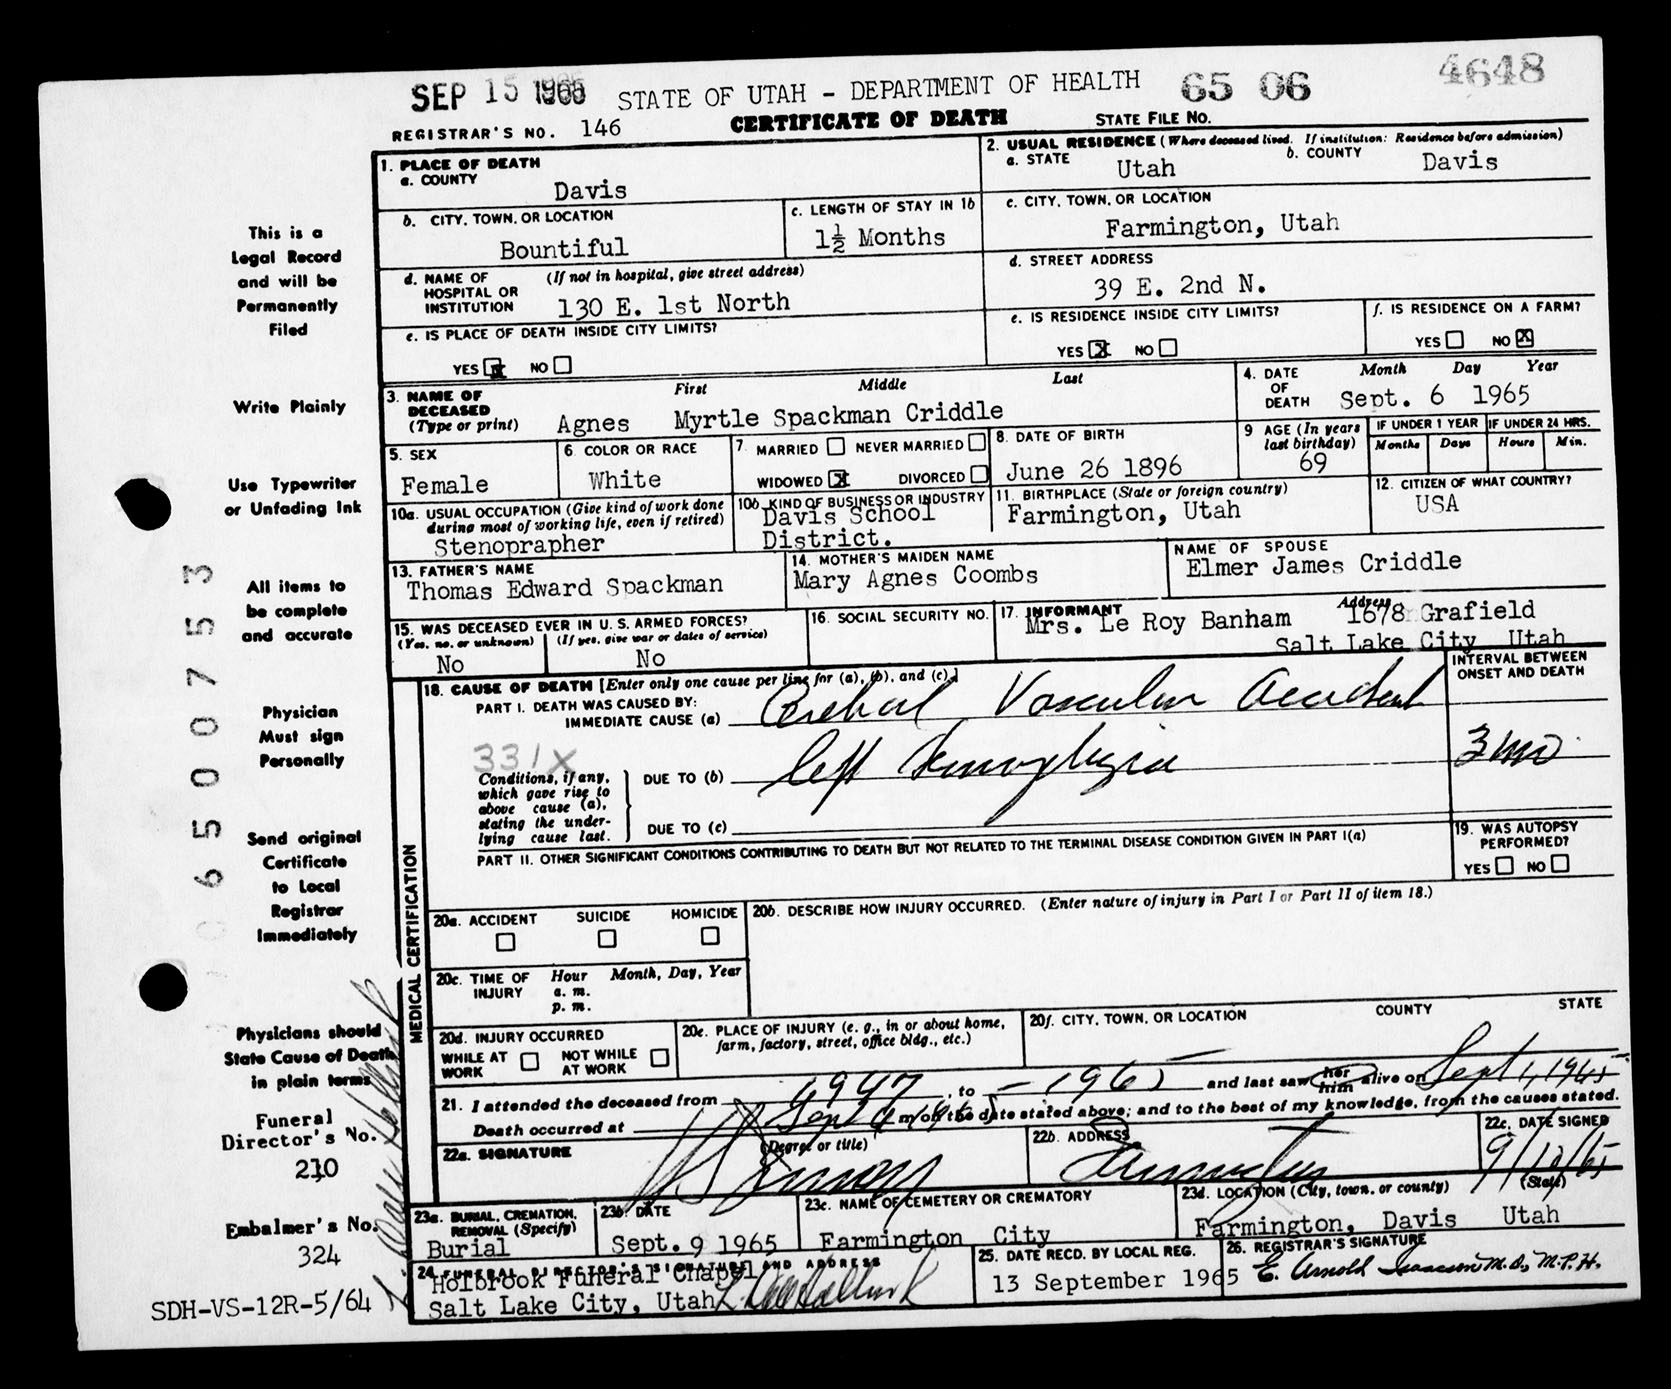 SEP 15 1965 STATE OF UTAH - DEPARTMENT OF HEALTH 65 06 4648
REGISTRAR'S NO. 146 CERTIFICATE OF DEATH STATE FILE NO.
1. PLACE OF DEATH
a. COUNTY
Davis
2. USUAL RESIDENCE (Where deceased lived. If institution: Residence before admission)
a. STATE Utah b. COUNTY Davis
b. CITY, TOWN, OR LOCATION
Bountiful
c. LENGTH OF STAY IN 1b
1½ Months
c. CITY, TOWN, OR LOCATION
Farmington, Utah
d. NAME OF HOSPITAL OR INSTITUTION (If not in hospital, give street address)
130 E. 1st North
d. STREET ADDRESS
39 E. 2nd N.
e. IS PLACE OF DEATH INSIDE CITY LIMITS?
YES X NO
e. IS RESIDENCE INSIDE CITY LIMITS?
YES X NO
f. IS RESIDENCE ON A FARM?
YES NO X
3. NAME OF DECEASED (Type or print) First Middle Last
Agnes Myrtle Spackman Criddle
4. DATE OF DEATH Month Day Year
Sept. 6 1965
5. SEX
Female
6 COLOR OR RACE
White
7 MARRIED NEVER MARRIED
WIDOWED X DIVORCED
8. DATE OF BIRTH
June 26 1896
9 AGE (In years last birthday)
69
IF UNDER 1 YEAR IF UNDER 24 HRS.
Months Days Hours Min.
10a. USUAL OCCUPATION (Give kind of work done during most of working life, even if retired)
Stenoprapher
10b KIND OF BUSINESS OR INDUSTRY
Davis School
District.
11. BIRTHPLACE (State or foreign country)
Farmington, Utah
12. CITIZEN OF WHAT COUNTRY?
USA
13. FATHER'S NAME
Thomas Edward Spackman
14. MOTHER'S MAIDEN NAME
Mary Agnes Coombs
NAME OF SPOUSE
Elmer James Criddle
15. WAS DECEASED EVER IN U. S. ARMED FORCES?
(Yes, no, or unknown) (If yes, give war or dates of service)
No No
16. SOCIAL SECURITY NO.
17. INFORMANT Address
Mrs. Le Roy Banham 1678 Grafield
Salt Lake City Utah
18. CAUSE OF DEATH [Enter only one cause per line for (a), (b), and (c).]
INTERVAL BETWEEN ONSET AND DEATH
PART I. DEATH WAS CAUSED BY:
IMMEDIATE CAUSE (a) Cerebral Vascular Accident
331X
Conditions, if any, which gave rise to above cause (a), stating the underlying cause last.
DUE TO (b) left Hemoplegia 3 mo
DUE TO (c)
PART II. OTHER SIGNIFICANT CONDITIONS CONTRIBUTING TO DEATH BUT NOT RELATED TO THE TERMINAL DISEASE CONDITION GIVEN IN PART I(a)
19. WAS AUTOPSY PERFORMED?
YES NO
20a. ACCIDENT SUICIDE HOMICIDE
20b. DESCRIBE HOW INJURY OCCURRED. (Enter nature of injury in Part I or Part II of item 18.)
20c. TIME OF INJURY Hour Month, Day, Year
a. m.
p. m.
20d. INJURY OCCURRED
WHILE AT WORK NOT WHILE AT WORK
20e. PLACE OF INJURY (e. g., in or about home, farm, factory, street, office bldg., etc.)
20f. CITY, TOWN, OR LOCATION COUNTY STATE
21. I attended the deceased from 1947, to - 1965 and last saw her him alive on Sept 1, 1965
Death occurred at Sept 6 1965 m on the date stated above; and to the best of my knowledge, from the causes stated.
22a. SIGNATURE (Degree or title)
22b. ADDRESS
22c. DATE SIGNED
9/10/65
23a. BURIAL, CREMATION, REMOVAL (Specify)
Burial
23b. DATE
Sept. 9 1965
23c. NAME OF CEMETERY OR CREMATORY
Farmington City
23d. LOCATION (City, town, or county) (State)
Farmington, Davis Utah
24 FUNERAL DIRECTOR'S SIGNATURE AND ADDRESS
Holbrook Funeral Chapel
Salt Lake City, Utah
25. DATE RECD. BY LOCAL REG.
13 September 1965
26. REGISTRAR'S SIGNATURE
E. Arnold Isaacson M.D., M.P.H.
MEDICAL CERTIFICATION
This is a
Legal Record
and will be
Permanently
Filed
Write Plainly
Use Typewriter
or Unfading Ink
All items to
be complete
and accurate
Physician
Must sign
Personally
Send original
Certificate
to Local
Registrar
Immediately
Physicians should
State Cause of Death
in plain terms
Funeral
Director's No.
210
Embalmer's No.
324
SDH-VS-12R-5/64
0 6 5 0 0 7 5 3